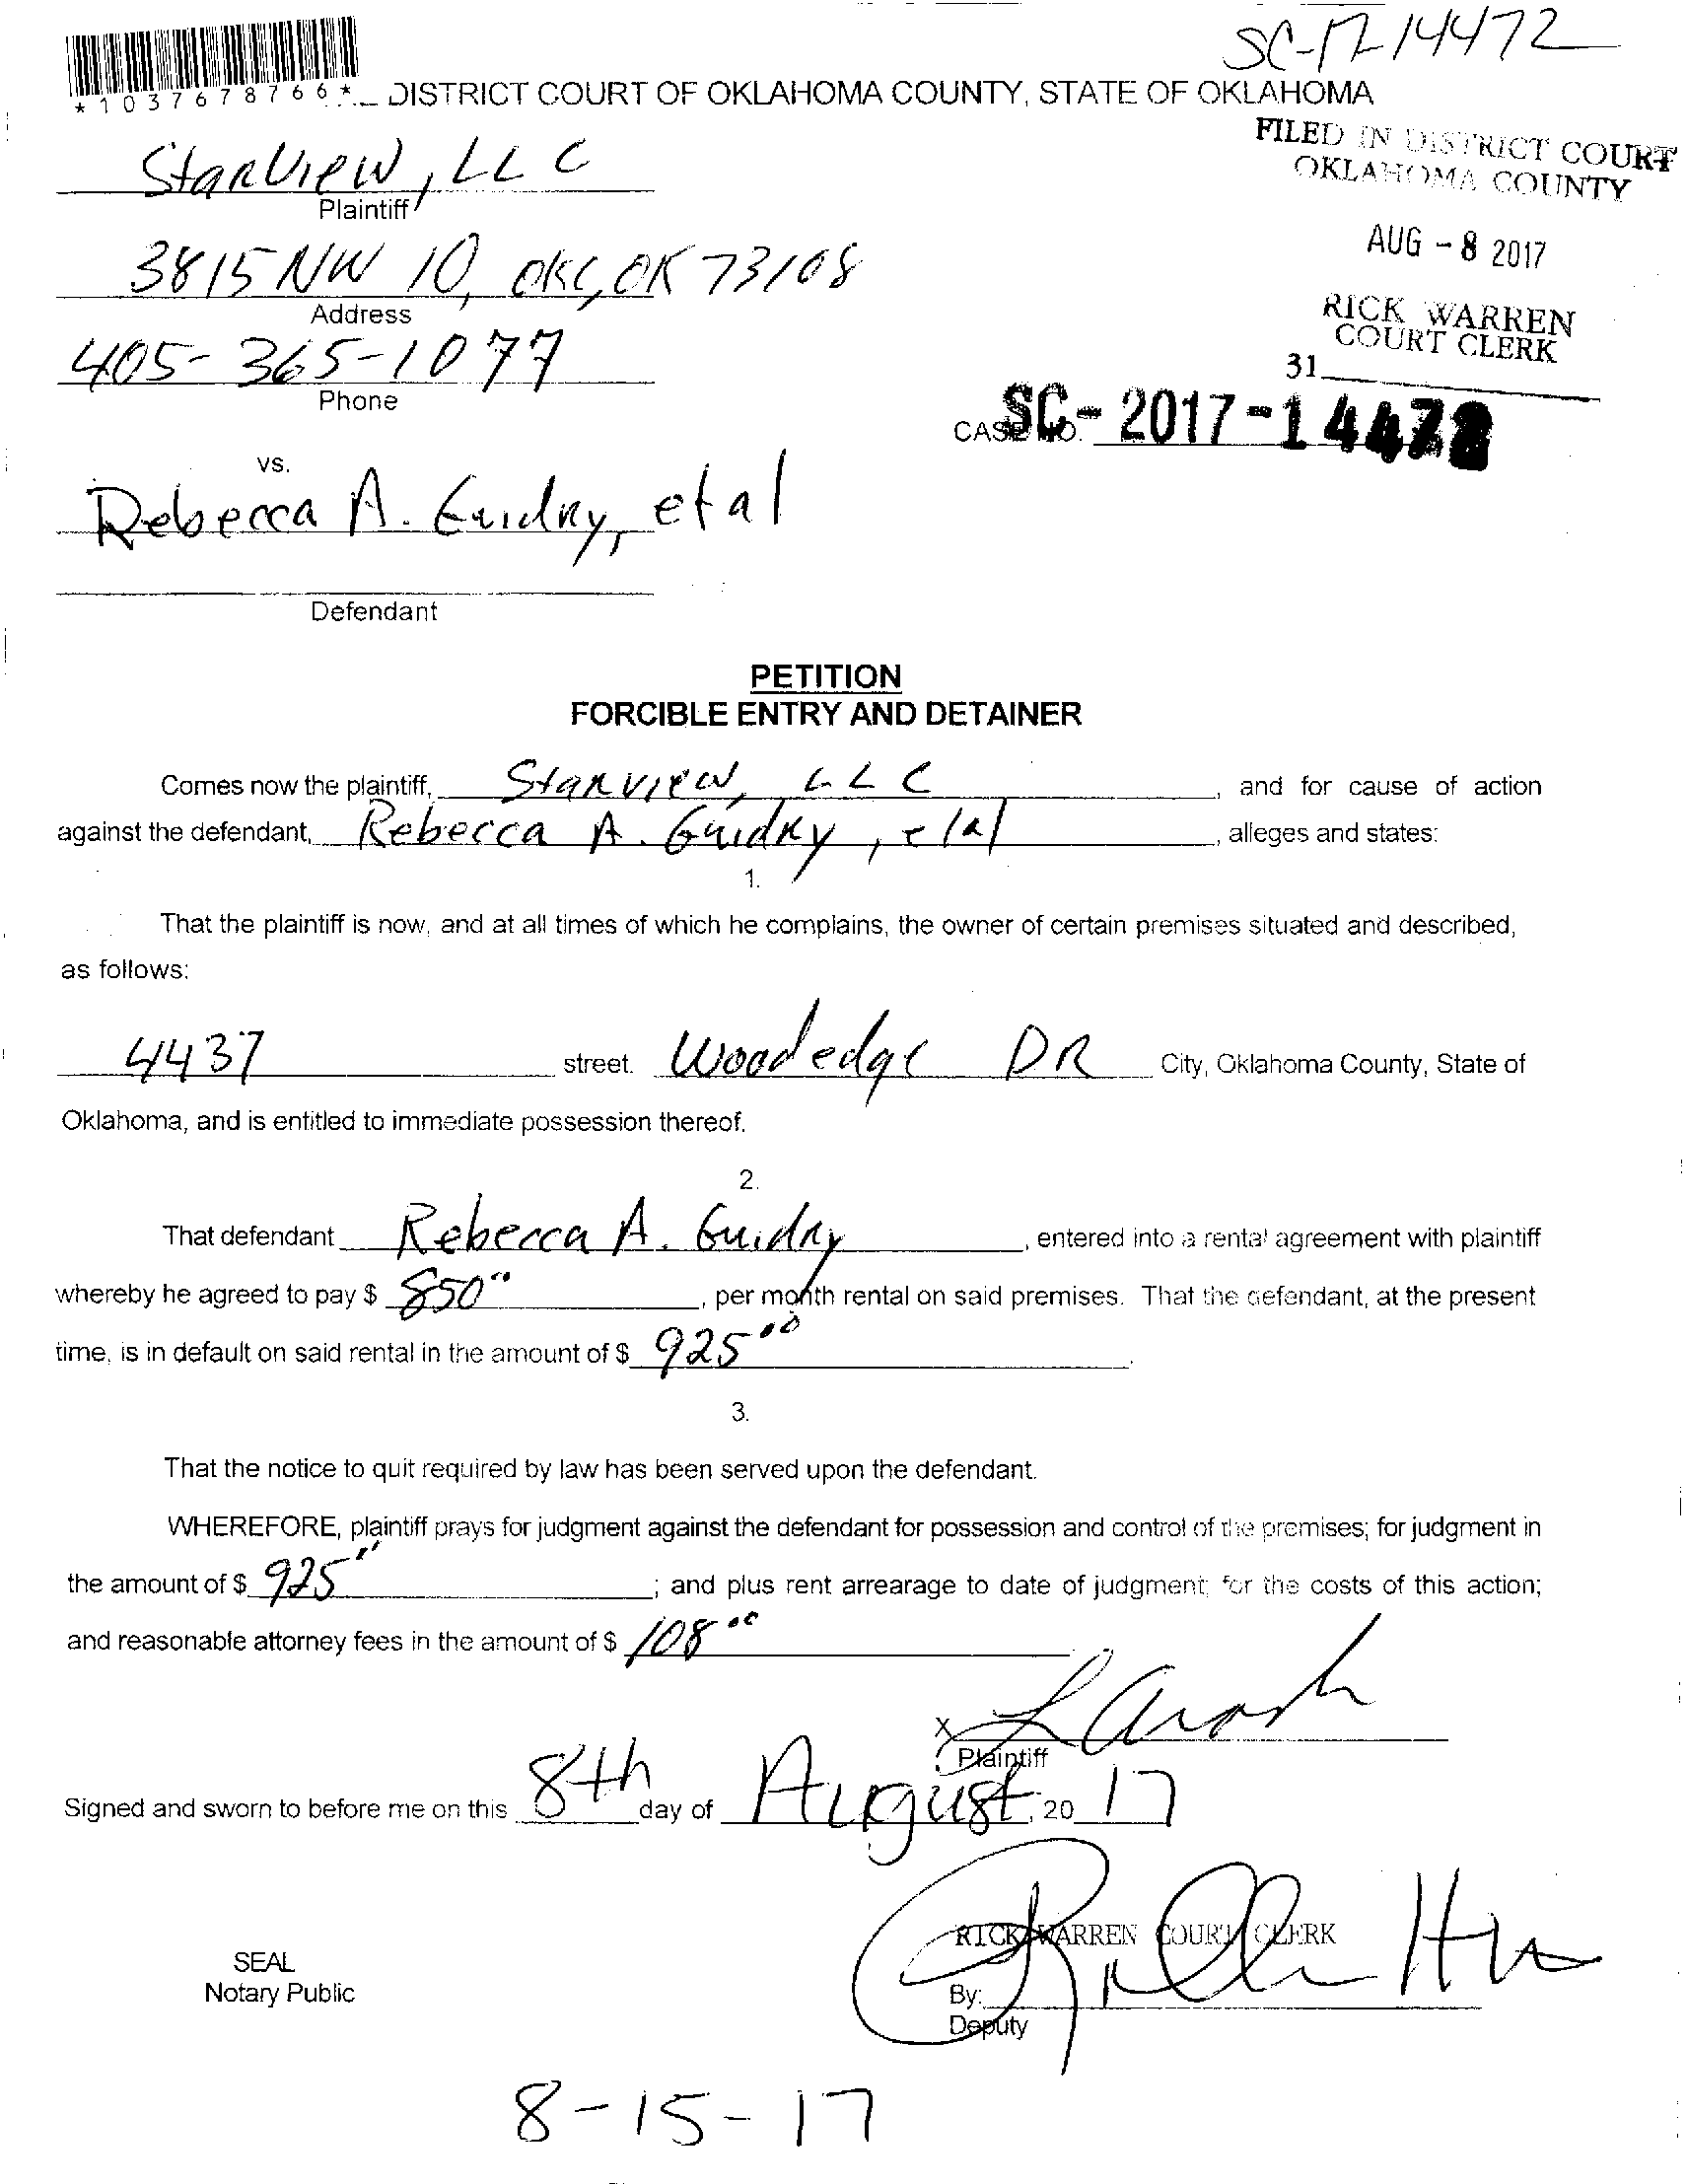 SC-17-14472
*1037678766*
DISTRICT COURT OF OKLAHOMA COUNTY, STATE OF OKLAHOMA
FILED IN DISTRICT COURT
OKLAHOMA COUNTY
StarView, LLC
Plaintiff
AUG - 8 2017
3815 NW 10, OKC, OK 73108
Address
RICK WARREN
COURT CLERK
405-365-1077
31
Phone
CASE NO. SC-2017-14472
vs.
Rebecca A. Guidry, et al
Defendant
PETITION
FORCIBLE ENTRY AND DETAINER
Comes now the plaintiff, StarView, LLC, and for cause of action
against the defendant, Rebecca A. Guidry, et al, alleges and states:
1.
That the plaintiff is now, and at all times of which he complains, the owner of certain premises situated and described,
as follows:
4437 street. Woodedge DR City, Oklahoma County, State of
Oklahoma, and is entitled to immediate possession thereof.
2.
That defendant Rebecca A. Guidry, entered into a rental agreement with plaintiff
whereby he agreed to pay $ 850⁰⁰, per month rental on said premises. That the defendant, at the present
time, is in default on said rental in the amount of $ 925⁰⁰.
3.
That the notice to quit required by law has been served upon the defendant.
WHEREFORE, plaintiff prays for judgment against the defendant for possession and control of the premises; for judgment in
the amount of $ 925⁰⁰; and plus rent arrearage to date of judgment; for the costs of this action;
and reasonable attorney fees in the amount of $ 108⁰⁰
X
Plaintiff
Signed and sworn to before me on this 8th day of August, 2017
RICK WARREN COURT CLERK
SEAL
Notary Public
By:
Deputy
8-15-17